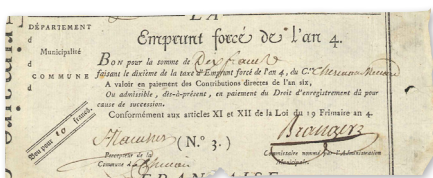 LA
DÉPARTEMENT
d
Municipalité
d
COMMUNE
d
Emprunt forcé de l'an 4.
BON pour la somme de Dix francs
faisant le dixième de la taxe d'Emprunt forcé de l'an 4, du C.en
A valoir en payement des Contributions directes de l'an six,
Ou admissible, dès-à-présent, en paiement du Droit d'enregistrement dû pour
cause de succession.
Conformément aux articles XI et XII de la Loi du 19 Frimaire an 4.
Bon pour 10 francs.
(N.° 3.)
Percepteur de la
Commune d
Commissaire nommé par l'Administration
Municipale.
FRANÇAISE